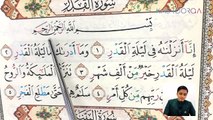 سُورَةُ الْقَدْرِ
بِسْمِ اللَّهِ الرَّحْمَٰنِ الرَّحِيمِ
إِنَّا أَنْزَلْنَاهُ فِي لَيْلَةِ الْقَدْرِ ١ وَمَا أَدْرَاكَ مَا لَيْلَةُ الْقَدْرِ ٢
لَيْلَةُ الْقَدْرِ خَيْرٌ مِنْ أَلْفِ شَهْرٍ ٣ تَنَزَّلُ الْمَلَائِكَةُ وَالرُّوحُ
بِإِذْنِ رَبِّهِمْ مِنْ كُلِّ أَمْرٍ ٤ سَلَامٌ هِيَ حَتَّى مَطْلَعِ الْفَجْرِ